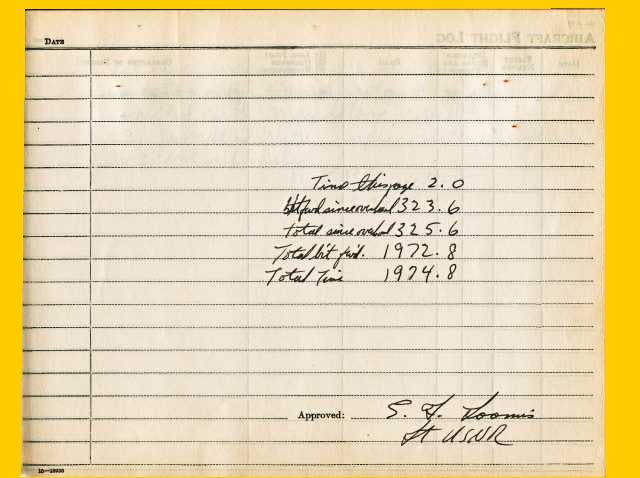 AIRCRAFT FLIGHT LOG
DATE
Time this page 2.0
bt fwd since overhaul 323.6
total since overhaul 325.6
Total bt fwd. 1972.8
Total Time 1974.8
Approved: S. F. Loomis
Lt USNR